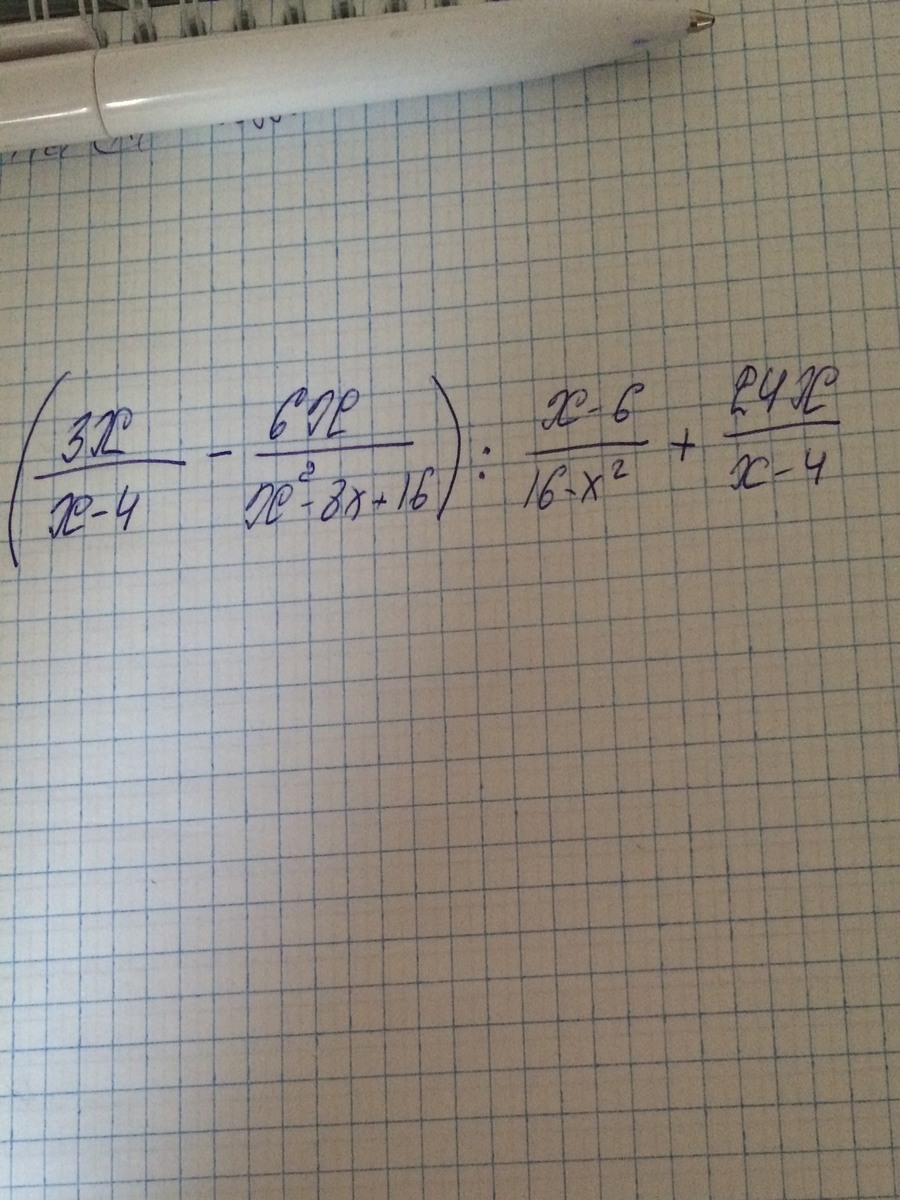 (3x/(x-4) - 6x/(x²-8x+16)) : (x-6)/(16-x²) + 24x/(x-4)